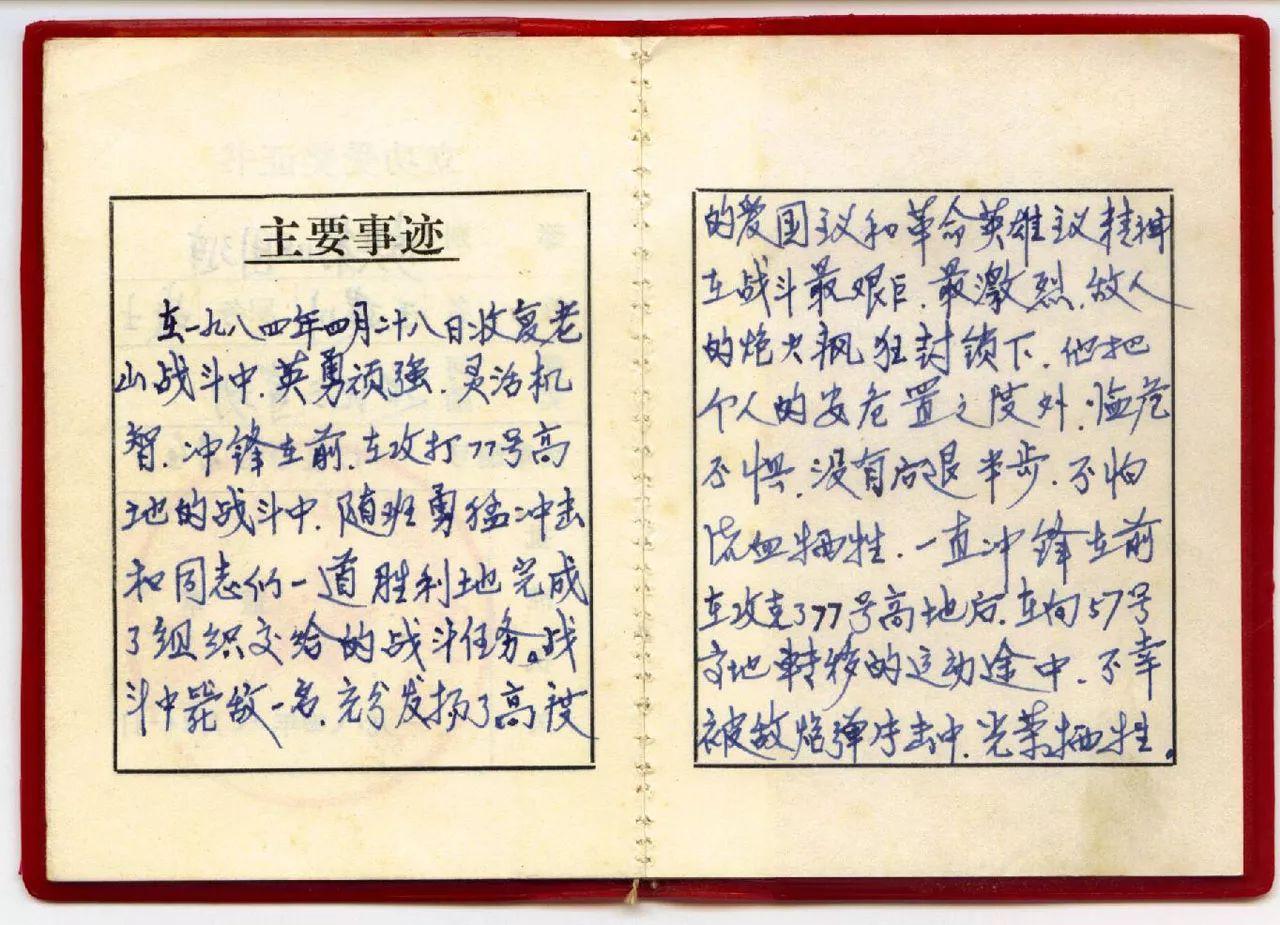 主要事迹
在一九八四年四月二十八日收复老
山战斗中,英勇顽强,灵活机
智,冲锋在前,在攻打77号高
地的战斗中,随班勇猛冲击
和同志们一道胜利地完成
了组织交给的战斗任务。战
斗中毙敌一名,充分发扬了高度
的爱国主议和革命英雄主议精神
在战斗最艰巨,最激烈,敌人
的炮火疯狂封锁下,他把
个人的安危置之度外,临危
不惧,没有后退半步,不怕
流血牺牲,一直冲锋在前
在攻克了77号高地后,在向57号
高地转移的运动途中,不幸
被敌炮弹片击中,光荣牺牲。